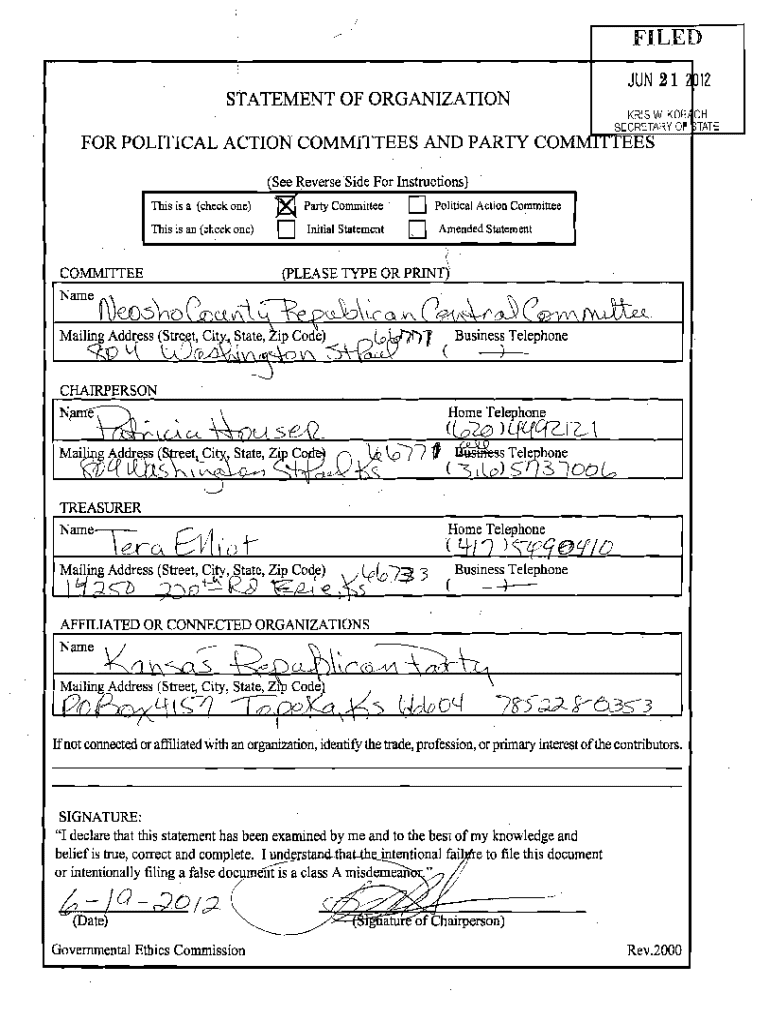 FILED
JUN 21 2012
KRIS W KOBACH
SECRETARY OF STATE
STATEMENT OF ORGANIZATION
FOR POLITICAL ACTION COMMITTEES AND PARTY COMMITTEES
(See Reverse Side For Instructions)
This is a (check one) ☒ Party Committee ☐ Political Action Committee
This is an (check one) ☐ Initial Statement ☐ Amended Statement
COMMITTEE (PLEASE TYPE OR PRINT)
Name Neosho County Republican Central Committee
Mailing Address (Street, City, State, Zip Code) 66771 Business Telephone
804 Washington St Paul ( )
CHAIRPERSON
Name Patricia Houser Home Telephone
(620) 4492121
Mailing Address (Street, City, State, Zip Code) 66771 cell Business Telephone
809 Washington St Paul Ks (316) 5737006
TREASURER
Name Tera Elliot Home Telephone
(417) 5490410
Mailing Address (Street, City, State, Zip Code) 66733 Business Telephone
14250 220th Rd Erie, Ks ( )
AFFILIATED OR CONNECTED ORGANIZATIONS
Name Kansas Republican Party
Mailing Address (Street, City, State, Zip Code)
PO Box 4157 Topeka, Ks 66604 785 228-0353
If not connected or affiliated with an organization, identify the trade, profession, or primary interest of the contributors.
SIGNATURE:
"I declare that this statement has been examined by me and to the best of my knowledge and
belief is true, correct and complete. I understand that the intentional failure to file this document
or intentionally filing a false document is a class A misdemeanor."
6-19-2012
(Date) (Signature of Chairperson)
Governmental Ethics Commission Rev.2000